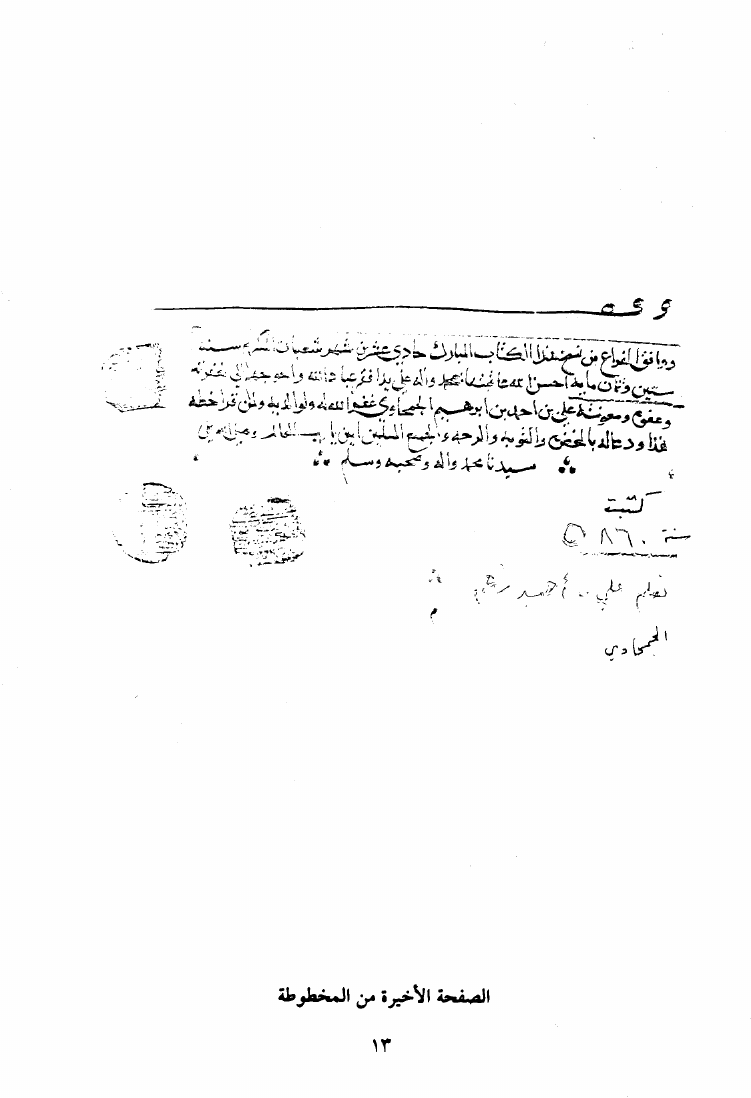 ووافق الفراغ من نسخ هذا الكتاب المبارك حادي عشرين شهر شعبان المكرم سنة
ستين وثمان مايه احسن الله عاقبتها بمحمد واله على يد افقر عباد الله واحوجهم الي مغفرته
وعفوه ومعونته علي بن احمد بن ابرهيم الجمحاوي غفر الله له ولوالديه ولمن قرا خطه
هذا ودعا له بالمغفرة والتوبه والرحمه ولجميع المسلمين امين يا رب العالمين وصلى الله على
سيدنا محمد واله وصحبه وسلم
كتبت
سنة ٨٦٠ ه
بقلم علي .. أحمد
الجمحاوي
الصفحة الأخيرة من المخطوطة
١٣